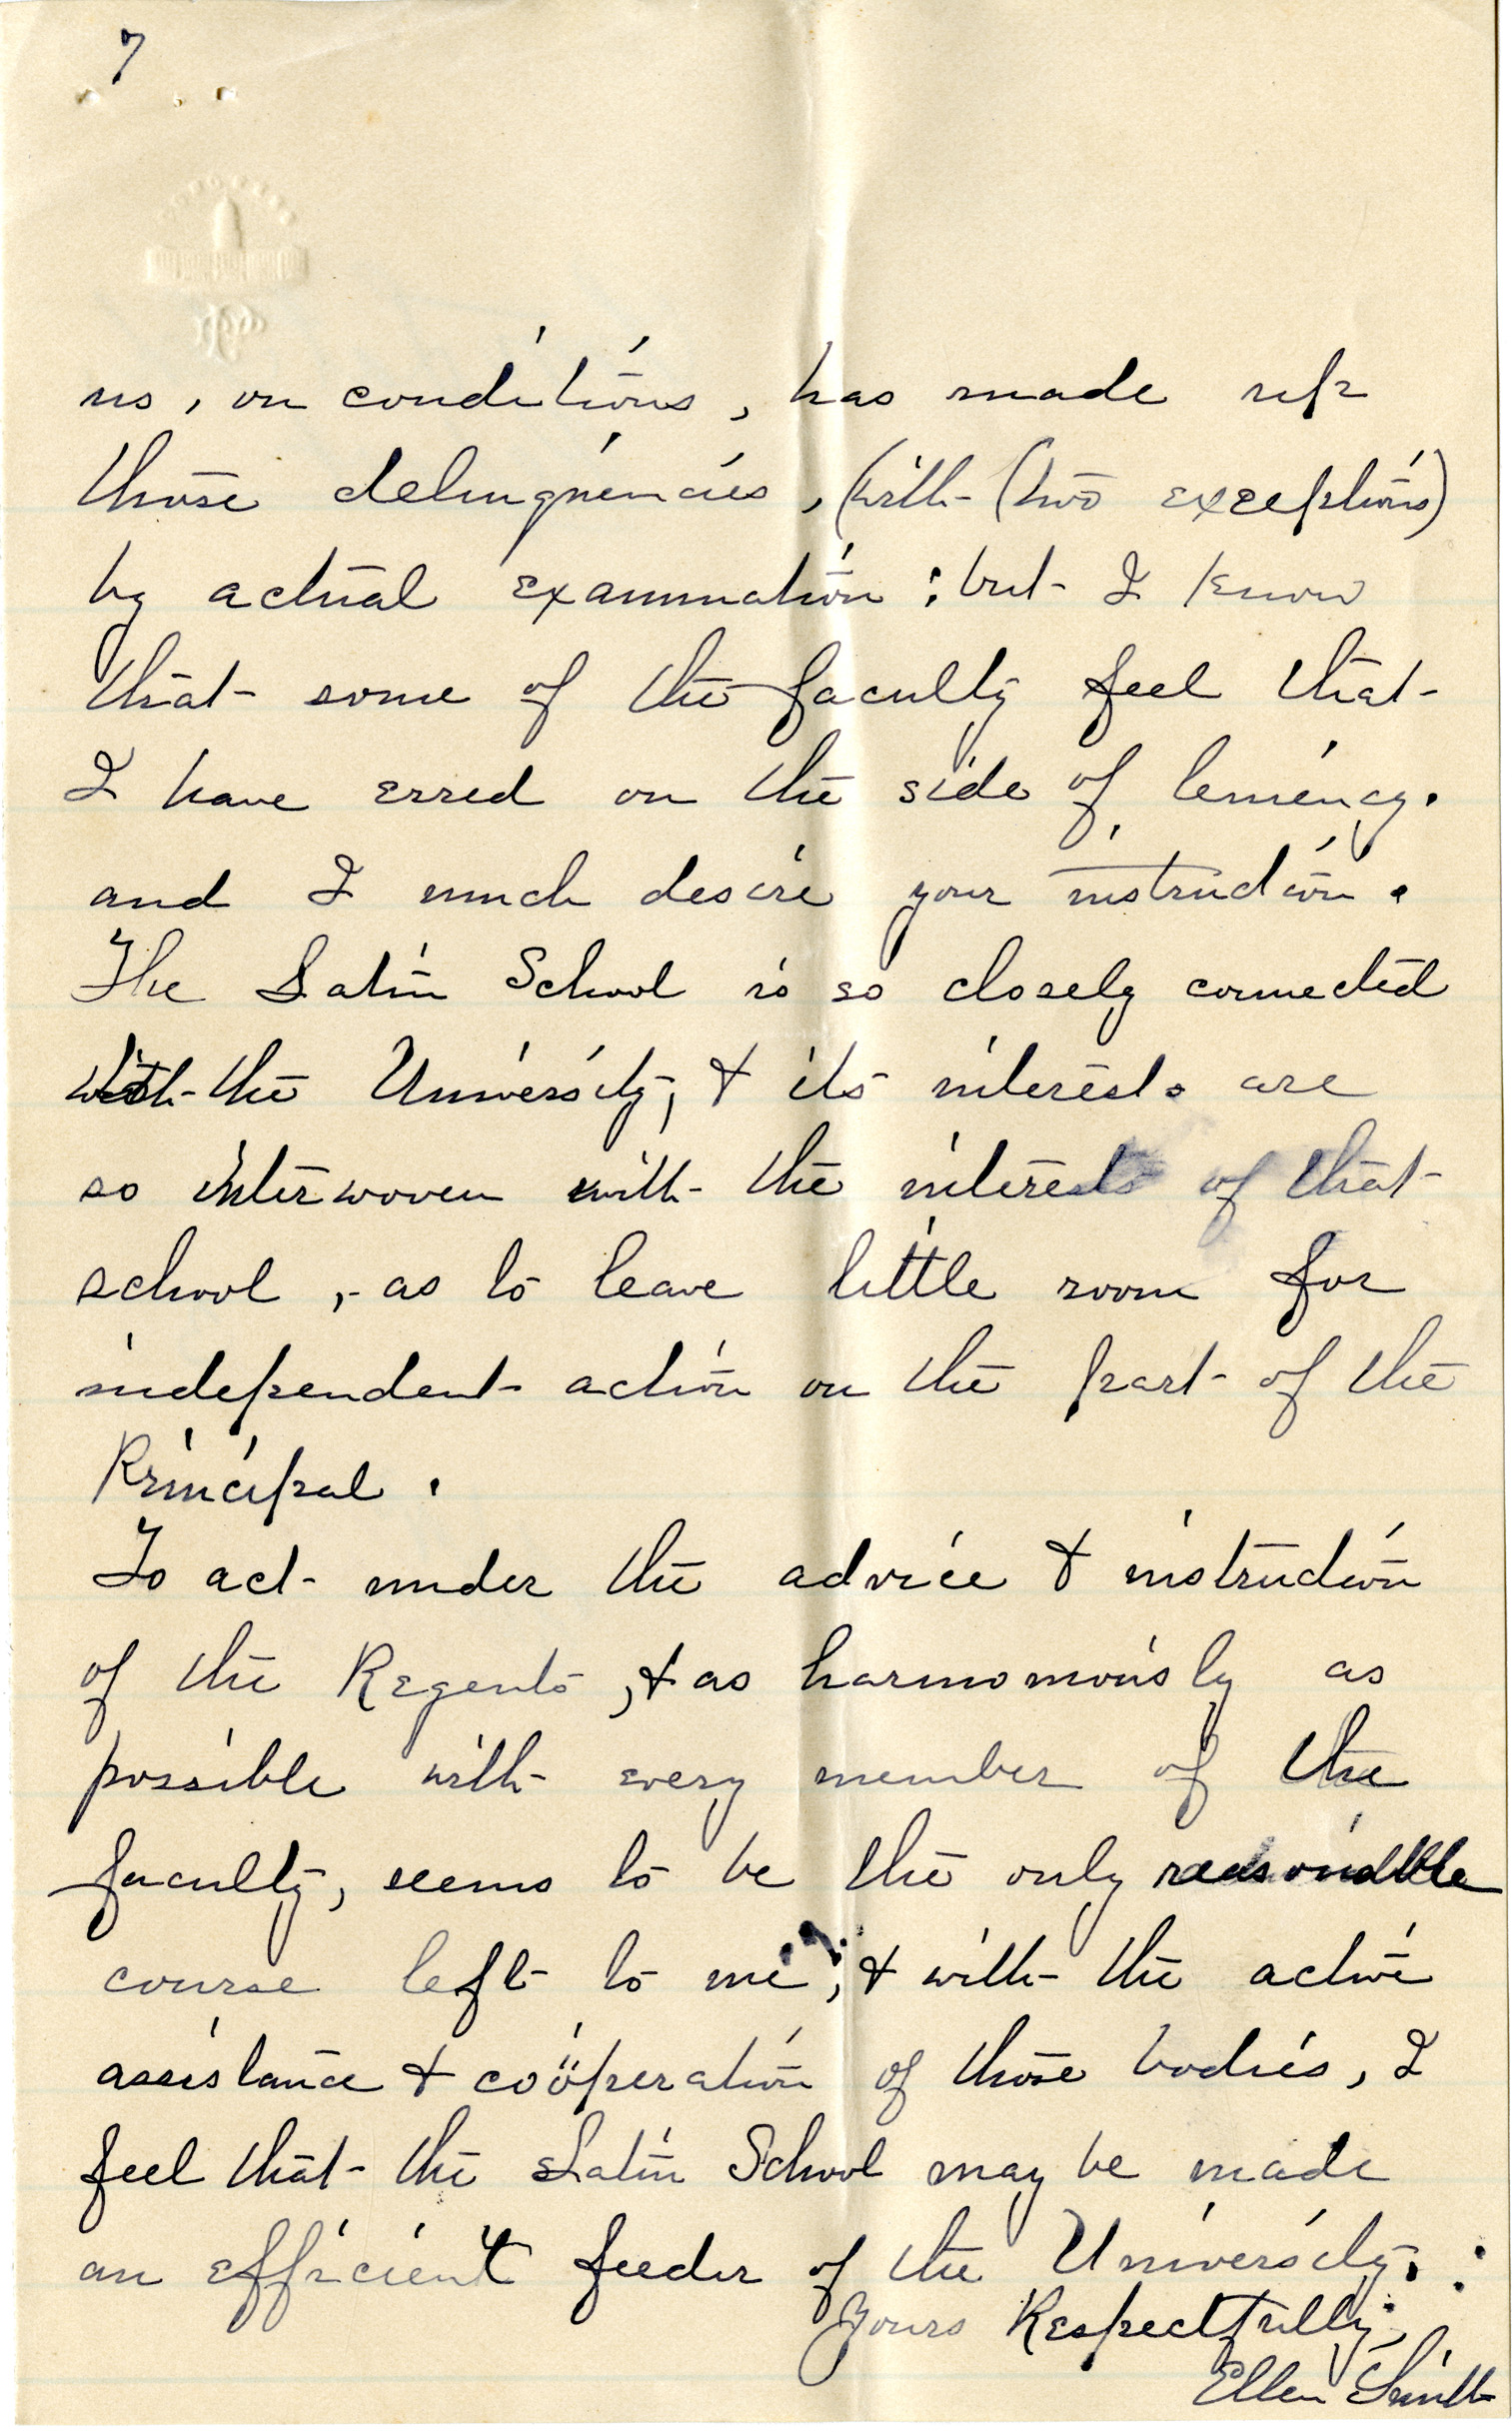 7
us, on conditions, has made up
those delinquencies, (with (two exceptions)
by actual examination: but I know
that some of the faculty feel that
I have erred on the side of leniency.
and I much desire your instruction.
The Latin School is so closely connected
with the University, & its interests are
so interwoven with the interests of that
school, - as to leave little room for
independent action on the part of the
Principal.
To act under the advice & instruction
of the Regents, & as harmoniously as
possible with every member of the
faculty, seems to be the only reasonable
course left to me; & with the active
assistance & coöperation of those bodies, I
feel that the Latin School may be made
an efficient feeder of the University.
Yours Respectfully,
Ellen Smith